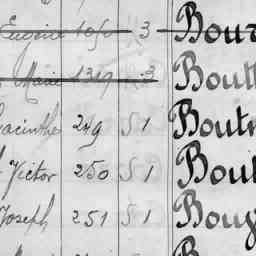 Eugène 1050 3 Bour
Marie 1349 3 Bout
Hyacinthe 249 S 1 Bout
Victor 250 S 1 Bou
Joseph 251 S 1 Bou